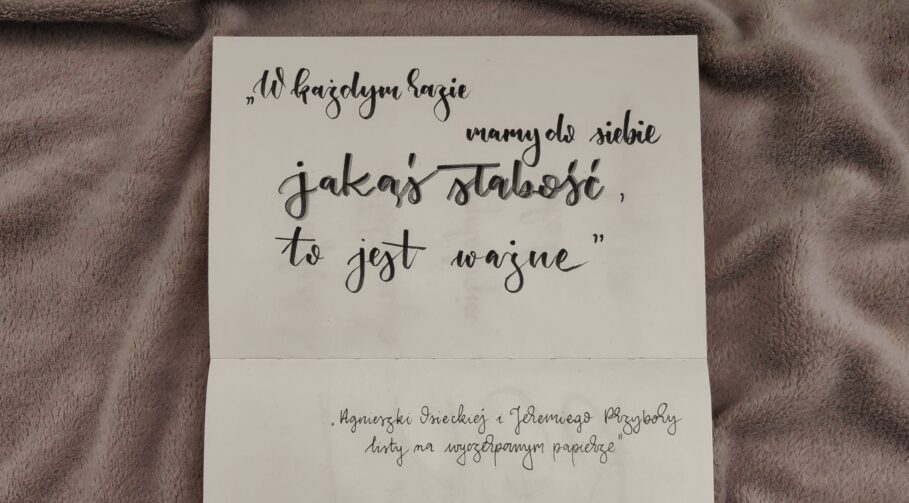 „W każdym razie
mamy do siebie
jakąś słabość,
to jest ważne”
„Agnieszki Osieckiej i Jeremiego Przybory
listy na wyczerpanym papierze”